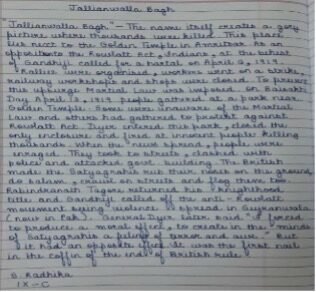 Jallianwalla Bagh
Jallianwalla Bagh" - The name itself creates a gory
picture where thousands were killed. This place
lies next to the Golden Temple in Amritsar. As an
opposition to the Rowlatt Act, Indians, at the behest
of Gandhiji called for a hartal on April 6, 1919.
Rallies were organised, workers went on a strike,
railway workshops and shops were closed. To prevent
this upsurge Martial Law was imposed. On Baisakhi
Day April 13, 1919 people gathered at a park near
Golden Temple. Some were unaware of the Martial
Law and others had gathered to protest against
Rowlatt Act. Dyer entered this park, closed the
only enclosure and fired at innocent people killing
thousands. When the news spread, people were
enraged. They took to streets, clashed with
police and attacked govt. building. The British
made the Satyagrahis rub their noses on the ground,
do salaam, crawl on streets and flog them too.
Rabindranath Tagore returned his knighthood
title and Gandhiji called off the anti-Rowlatt
movement seeing violence spread in Gujranwala
(now in Pak). General Dyer later said "I forced
to produce a moral effect, to create in the minds
of Satyagrahis a feeling of terror and awe." But
it had an opposite effect. It was the first nail
in the coffin of the end of British rule.
S. Radhika
IX-C